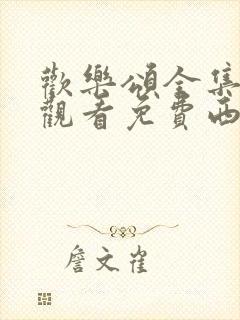 歡樂頌全集
觀看免費西
詹文雀